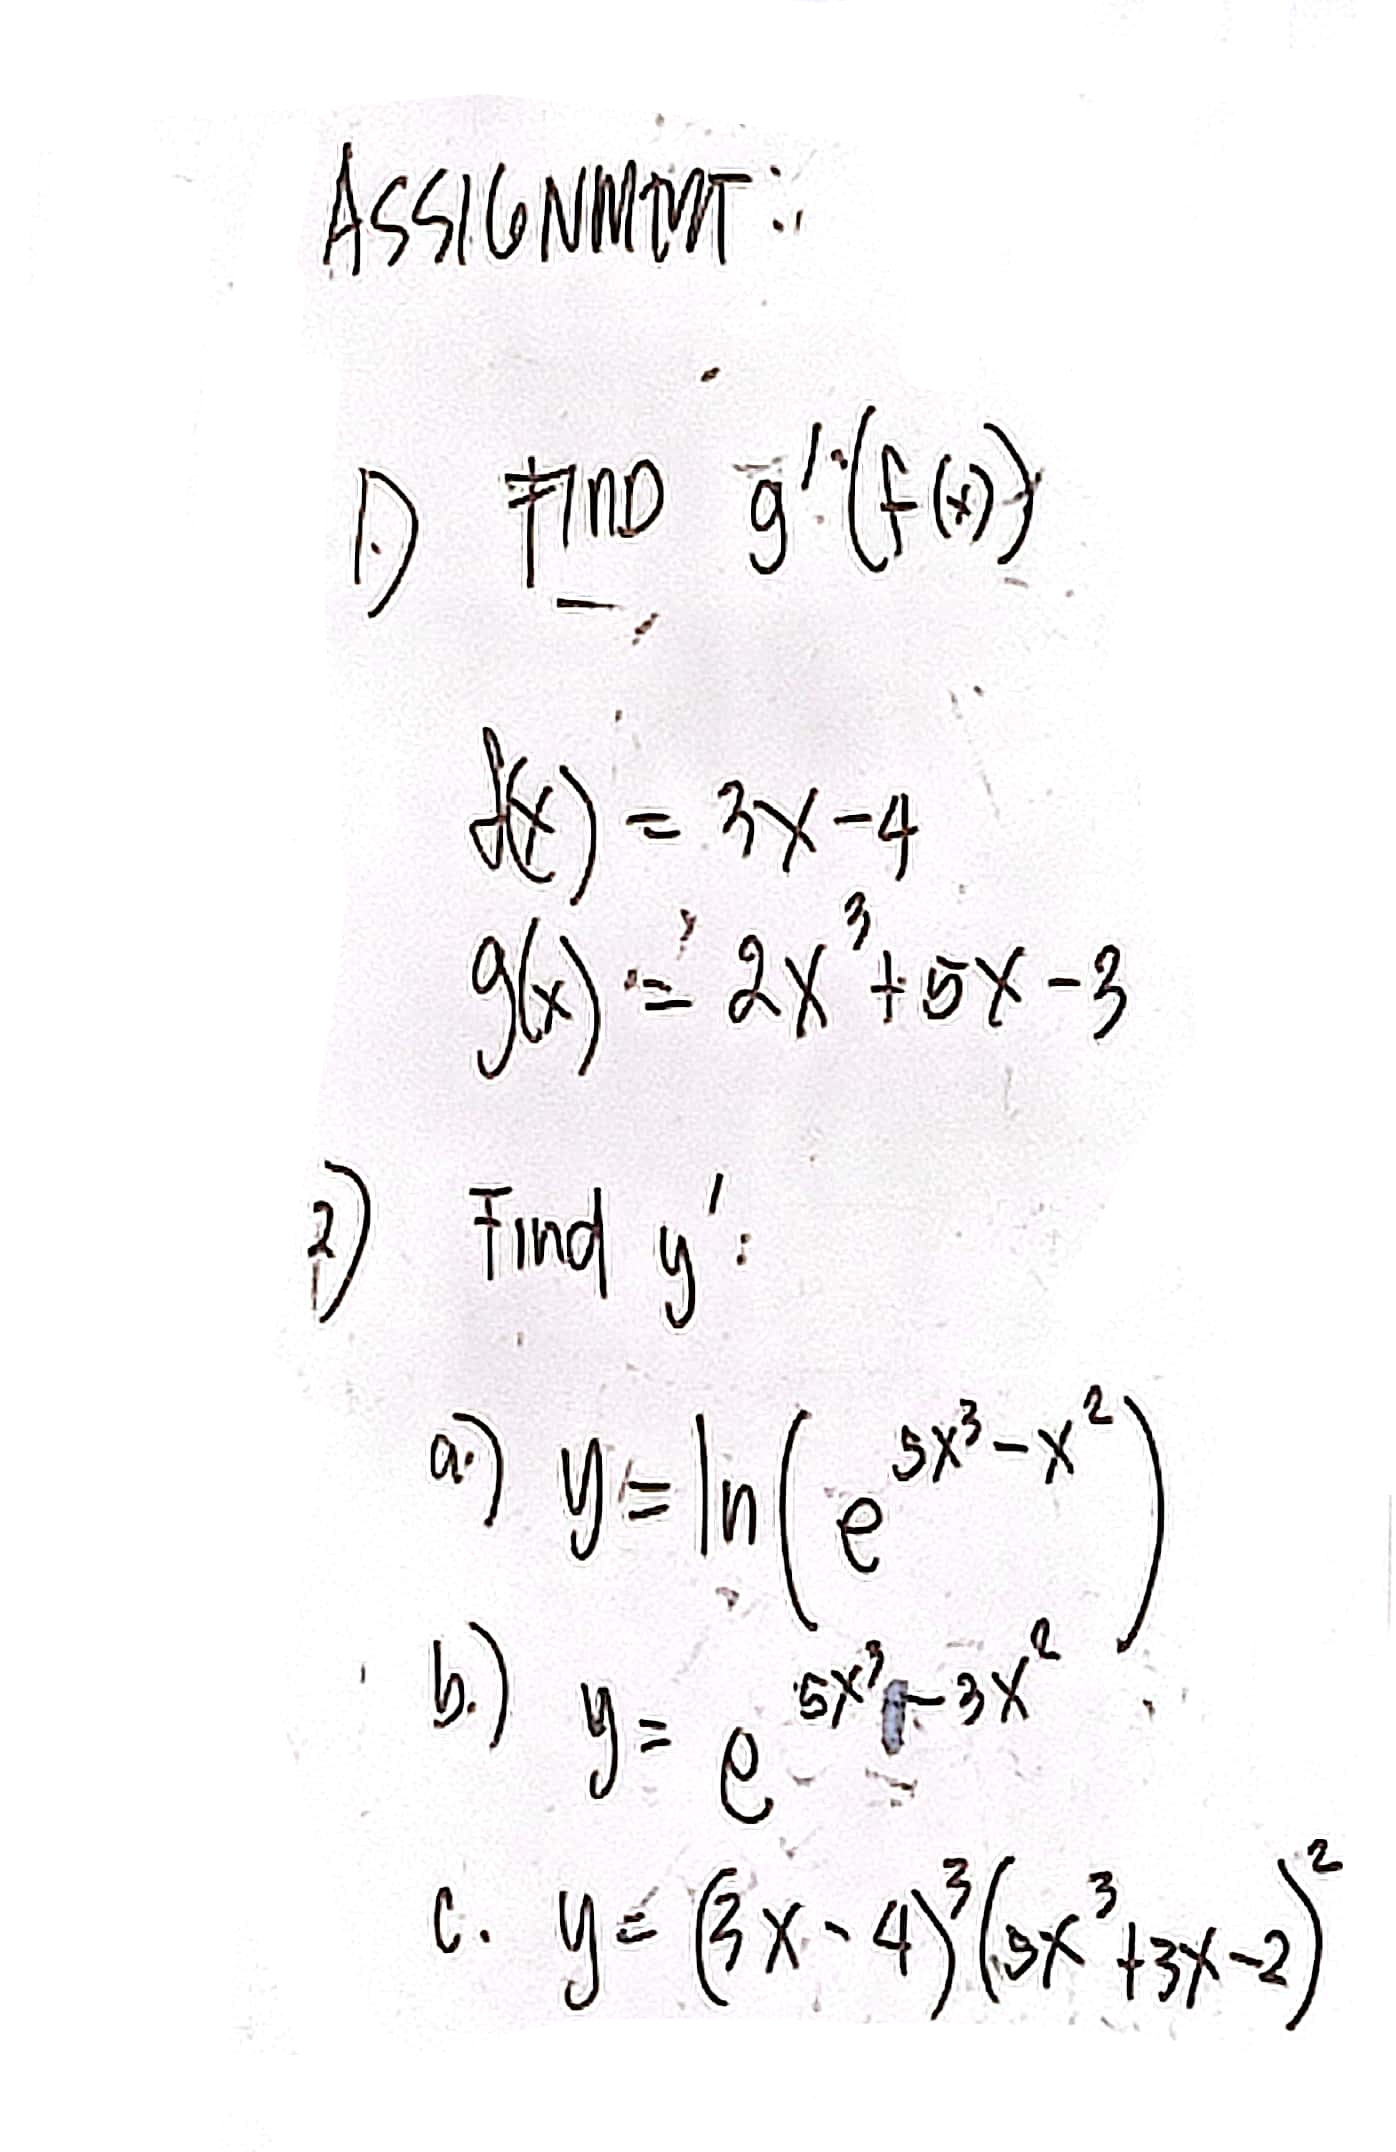 ASSIGNMENT:
1.) FIND g'(f(x))
f(x) = 3x-4
g(x) = 2x³+5x-3
2) Find y':
a.) y = ln(e^{5x³-x²})
b.) y = e^{5x³-3x²}
c. y = (3x-4)³(5x³+3x-2)²